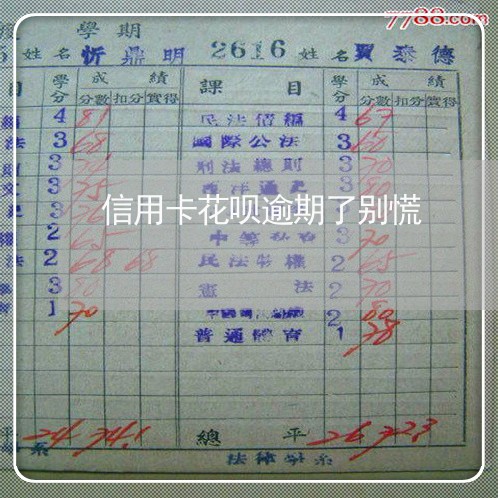 7788.com
學期
姓名 忻鼎明 2616 姓名 賈泰德
目 學分 成績 課目 學分 成績
分數 扣分 實得 分數 扣分 實得
4 81 民法債編 4 67
法 3 68 國際公法 3 60
3 刑法總則 3 70
3 75 西洋通史 3 80
信用卡花呗逾期了别慌
2 65 3 70
法 2 68 68 民法物權 2 65
3 80 憲法 2 70
1 70 2 80
普通體育 1 78
平 24 74.1 總平 26 72.3
系 法律學系